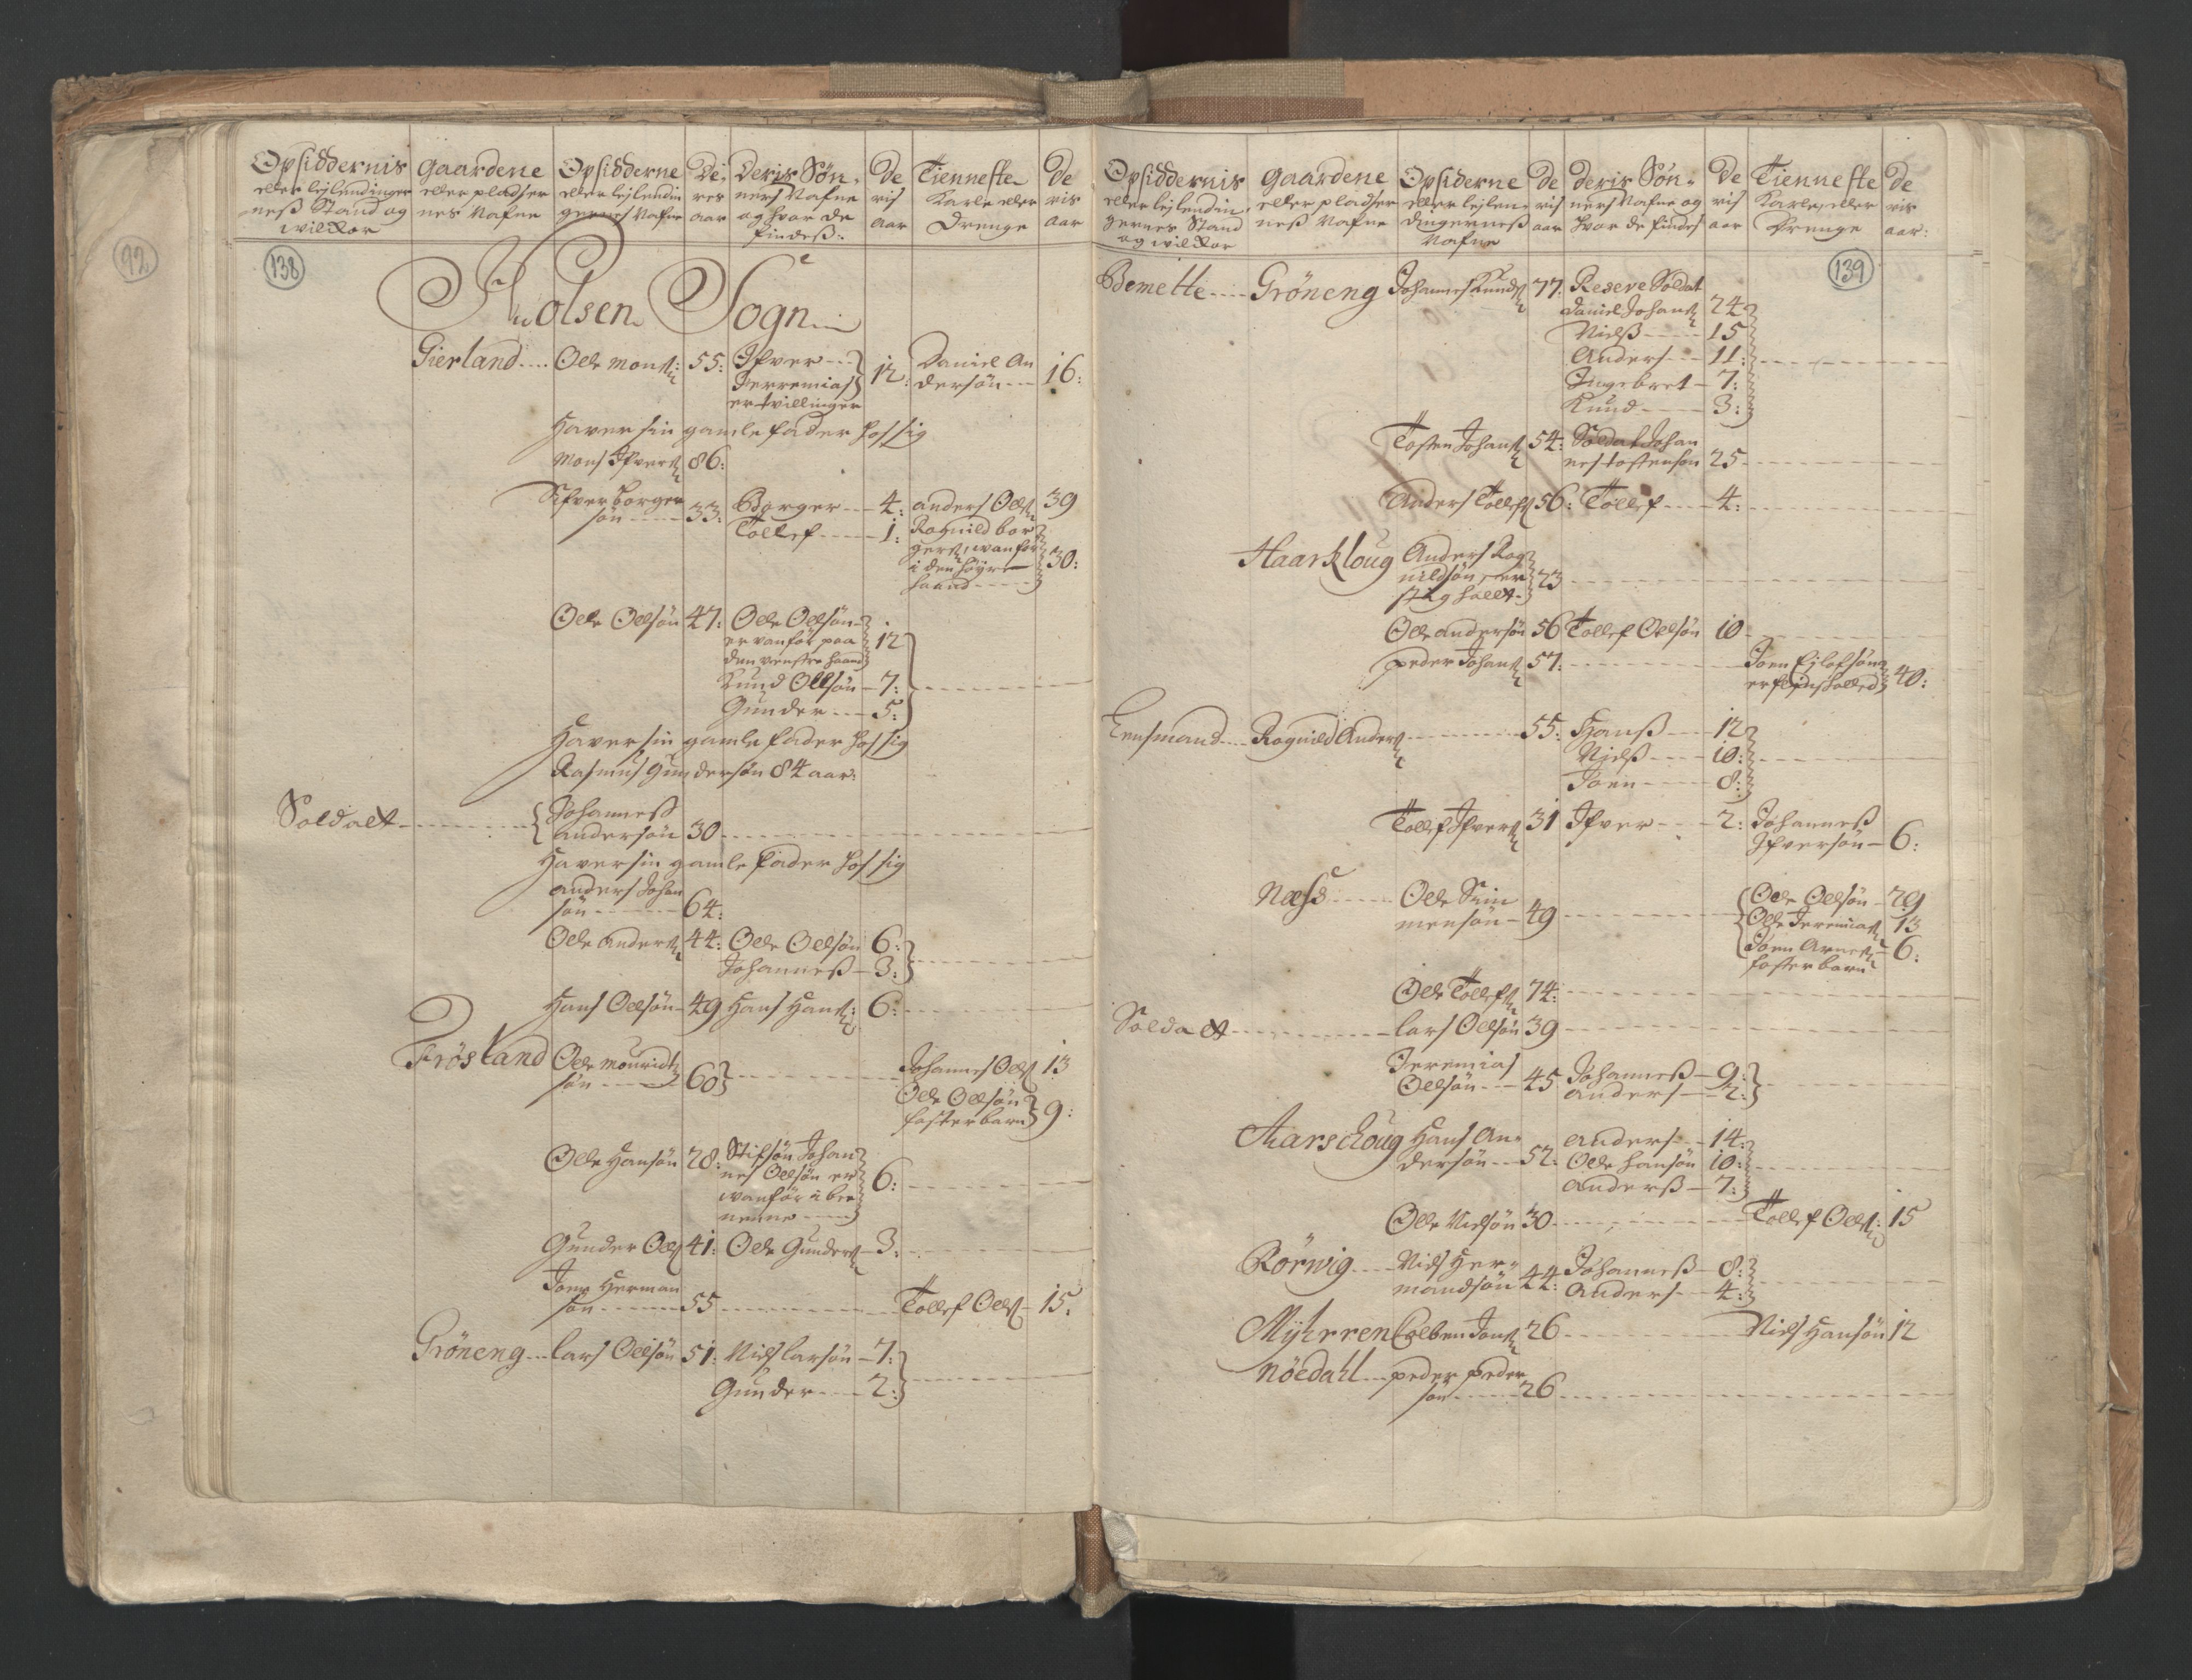 92
138
Opsiddernis eller lejlendinger neß Stand og wilkor
Gaardene eller pladser nes Nafne
Opsidderne eller lejlendin gernes Nafne
De res aar
Deris Søn ners Nafne og hvor de findeß
De ris aar
Tienneste Karle eller Drenge
De ris aar
Holsen Sogn
Gierland Ole Monß: 55: Ifver
Jerremias 12: Daniel An dersøn 16:
er tvillinger
Haver sin gamle fader hos sig
Mons Ifverß 86:
Sifver borger søn 33: Borger 4: anders Olß 39
Tollef 1: Rognild bor gerß, wanfør i den høyre haand 30:
Ole Olsøn 47: Ole Olsøn er vanfør paa den venstre haand 12
Knud Olsøn 7:
Gunder 5:
Haver sin gamle fader hos sig
Rasmus Gundersøn 84 aar:
Soldat Johanneß andersøn 30
Haver sin gamle fader hos sig
anders Johan søn 64:
Ole anderß 44: Ole Olsøn 6:
Johanneß 3:
Hans Olsøn 49 Hans Hanß: 6:
Frøsland Ole Mouridt søn 60 Johannes Olß 13
Ole Olsøn fosterbarn 9:
Ole Hansøn 28: Stifsøn Johan nes Olsøn er wanfør i bee nenne 6:
Gunder Olß 41: Ole Gunderß 3:
Joen Herman søn 55 Tollef Olß 15:
Grøneng lars Olsøn 51: Niels larsøn 7:
Gunder 2:
139
Opsiddernis eller lejlendin gernes Stand og wilkor
Gaardene eller pladser neß Nafne
Opsiderne eller lejlen dingerneß Nafne
De ris aar
deris Søn ners Nafne og hvor de findes
De ris aar
Tienneste Karle, eller Drenge
De ris aar:
Bemelte Grøneng Johannes Knudß 77: Reserve Soldat
Daniel Johanß 24
Nielß 15
Anders 11:
Ingebret 7:
Knud 3:
Tosten Johanß 54: Soldat Johan nes tostensøn 25
Anders Tollefß 56: Tollef 4:
Haarkloug Anders Rog nildsøn, er 73
Ole andersøn 56 Tollef Olsøn 10
peder Johanß 57: Joen Ejlofsøn 40:
Lensmand Rognild Anderß 55: Hanß 12
Nielß 10:
Joen 8:
Tollef Ifverß 31 Ifver 2: Johanneß Ifversøn 6:
Næss Ole Sim mensøn 49 Ole Olsøn 29
Ole Jeremiasß 13
Joen Arneß 6:
foster barn
Ole Tollefß 74:
Soldat lars Olsøn 39
Jeremias Olsøn 45 Johanneß 9:
anders 2:
Aarschoug Hans An dersøn 52: anders 14:
Ole hansøn 10:
anderß 7:
Ole Nielsøn 30 Tollef Olß: 15
Rørwig Niels Her mandsøn 44: Johanneß 8:
Anders 4:
Myhrren Colben Jonß 26 Niels Hansøn 12
Nøedahl peder peder søn 26